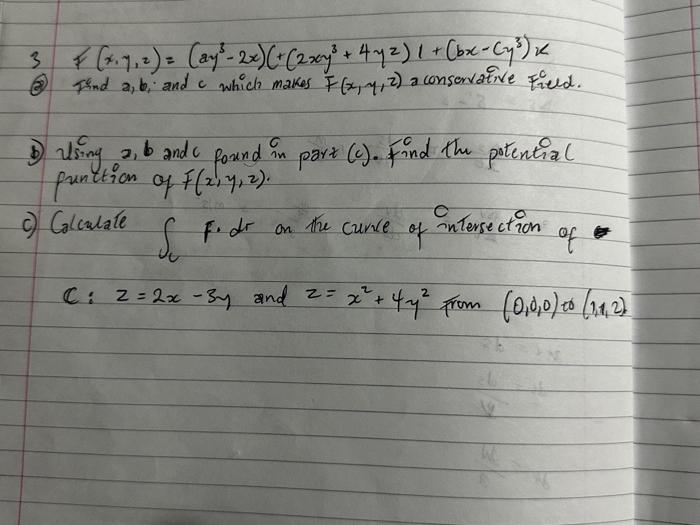 3 F(x,y,z) = (ay³ - 2x)(+(2xy³ + 4yz) 1 + (bx - Cy³) k
(a) Find a, b, and c which makes F(x,y,z) a conservative Field.
b) Using a, b and c found in part (c). Find the potential
function of F(x,y,z).
c) Calculate ∫c F. dr on the curve of intersection of
C: z = 2x - 3y and z = x² + 4y² from (0,0,0) to (1,1,2)